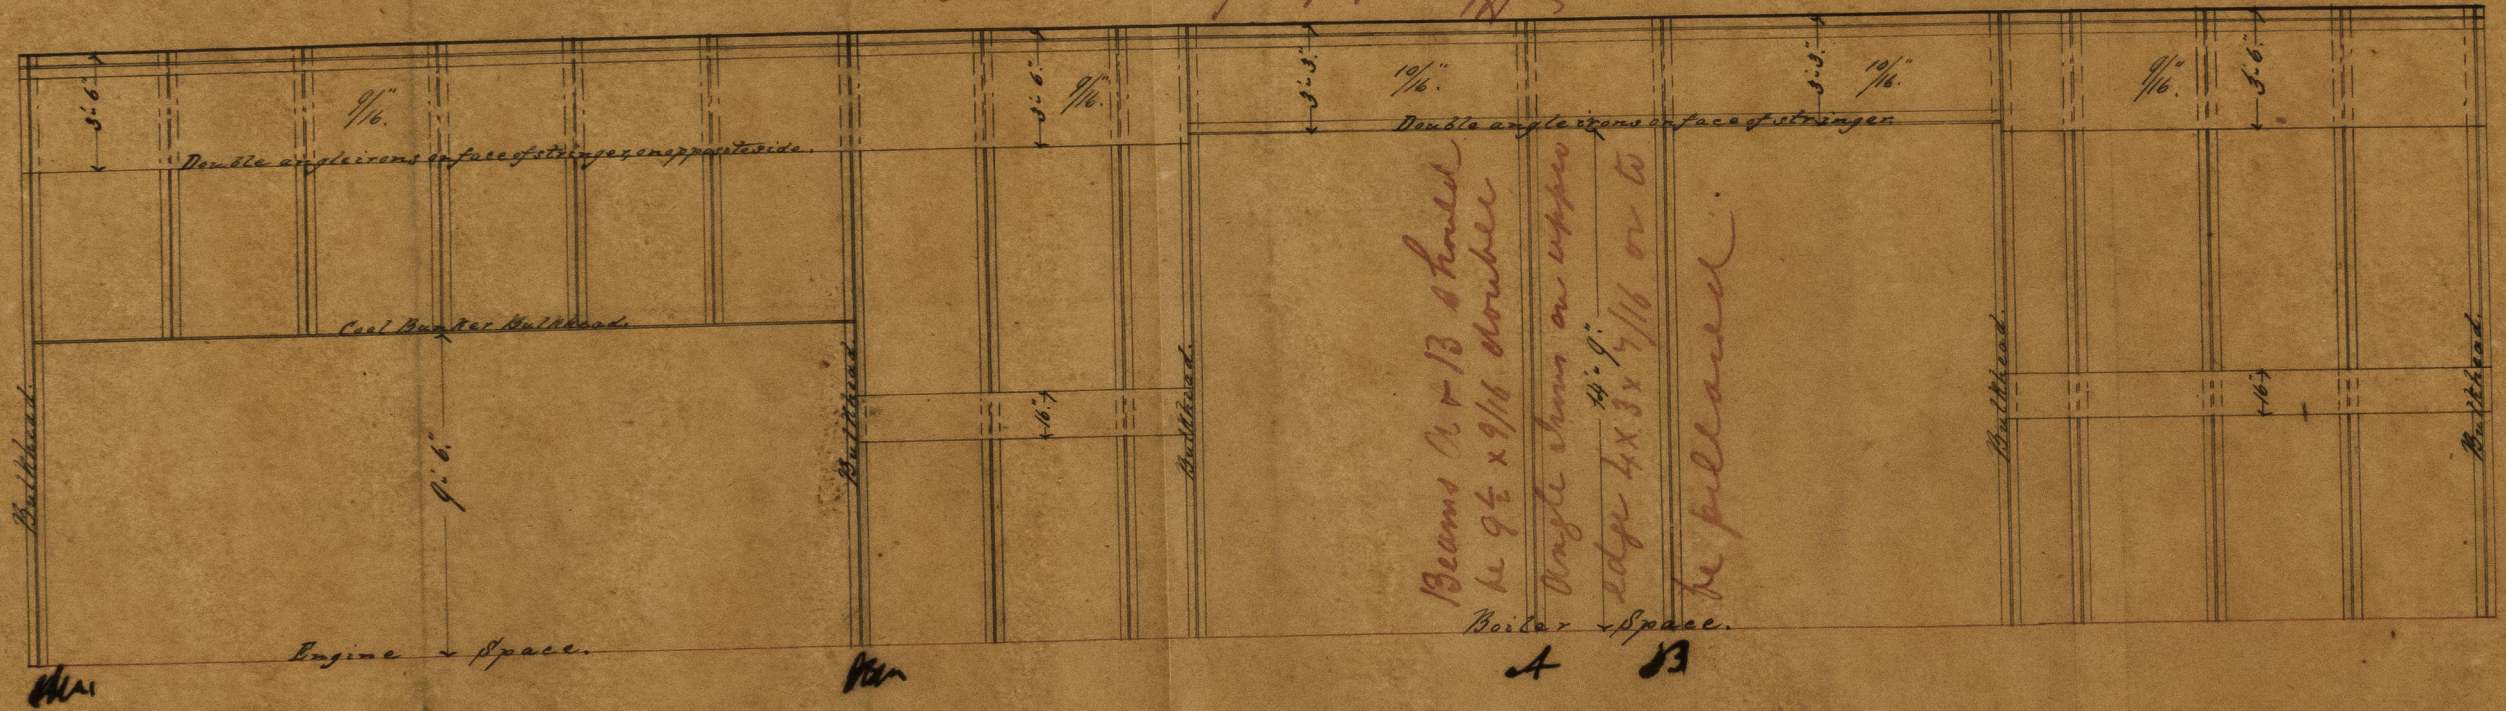 3'- 6"
9/16"
3'- 6"
9/16"
3'- 3"
10/16"
3'- 3"
10/16"
9/16"
3'- 6"
Double angle irons on face of stringer, on opposite side.
Double angle irons on face of stringer.
Coal Bunker Bulkhead.
Bulkhead.
9'- 6"
Bulkhead.
16"
Bulkhead.
Beams A & B should
be 9½ x 9/16 double
angle irons on upper
edge 4 x 3 x 7/16 or to
be pillared.
14'- 9"
Bulkhead.
16"
Bulkhead.
Engine Space.
Boiler Space.
A
B